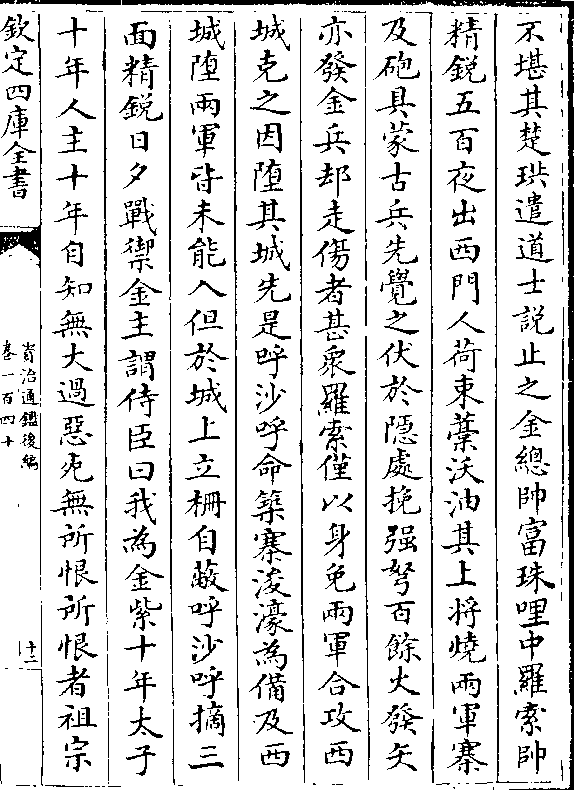 不堪其楚珙遣道士説止之金總帥富珠哩中羅索帥
精鋭五百夜出西門人荷束藁沃油其上将燒兩軍寨
及砲具蒙古兵先覺之伏於隠處挽强弩百餘火發矢
亦發金兵却走傷者甚衆羅索僅以身免兩軍合攻西
城克之因墮其城先是呼沙呼命築寨浚濠為備及西
城墮兩軍皆未能入但於城上立栅自蔽呼沙呼摘三
面精鋭日夕戰禦金主謂侍臣曰我為金紫十年太子
十年人主十年自知無大過惡死無所恨所恨者祖宗
欽定四庫全書
資治通鑑後編
卷一百四十
十二